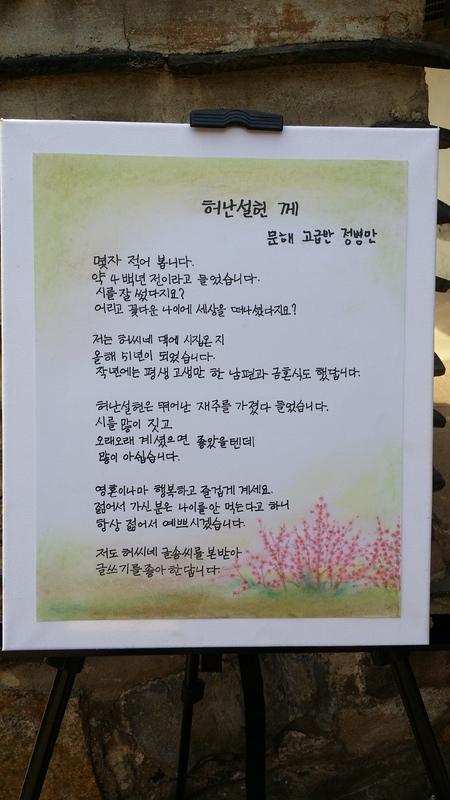 허난설헌 께
문해 고급반 정병만
몇자 적어 봅니다.
약 4백년 전이라고 들었습니다.
시를 잘 썼다지요?
어리고 꽃다운 나이에 세상을 떠나셨다지요?
저는 허씨네 댁에 시집온 지
올해 51년이 되었습니다.
작년에는 평생 고생만 한 남편과 금혼식도 했답니다.
허난설헌은 뛰어난 재주를 가졌다 들었습니다.
시를 많이 짓고
오래오래 계셨으면 좋았을텐데
많이 아쉽습니다.
영혼이나마 행복하고 즐겁게 계세요.
젊어서 가신 분은 나이를 안 먹는다고 하니
항상 젊어서 예쁘시겠습니다.
저도 허씨네 글솜씨를 본받아
글쓰기를 좋아 한답니다.